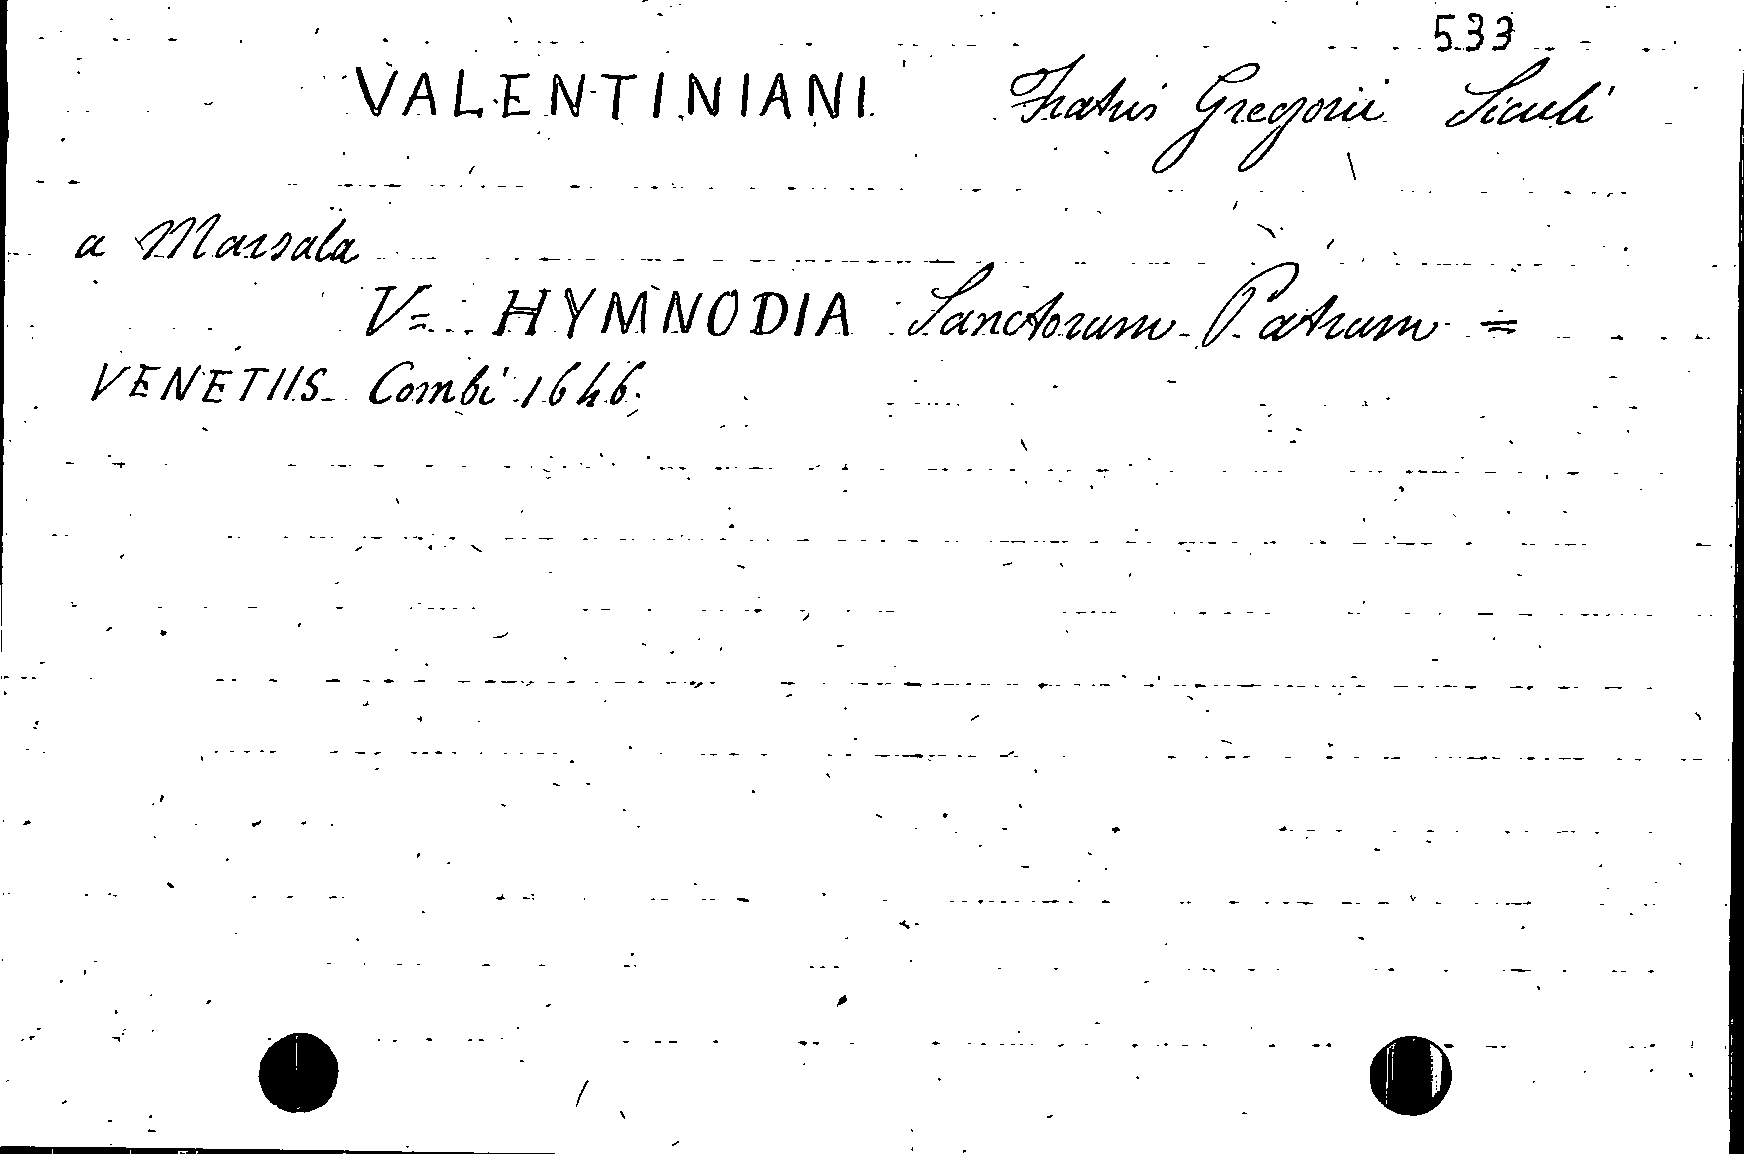 533
VALENTINIANI Fratris Gregorii Siculi
a Marsala
V= HYMNODIA Sanctorum Patrum =
VENETIIS Combi 1646.